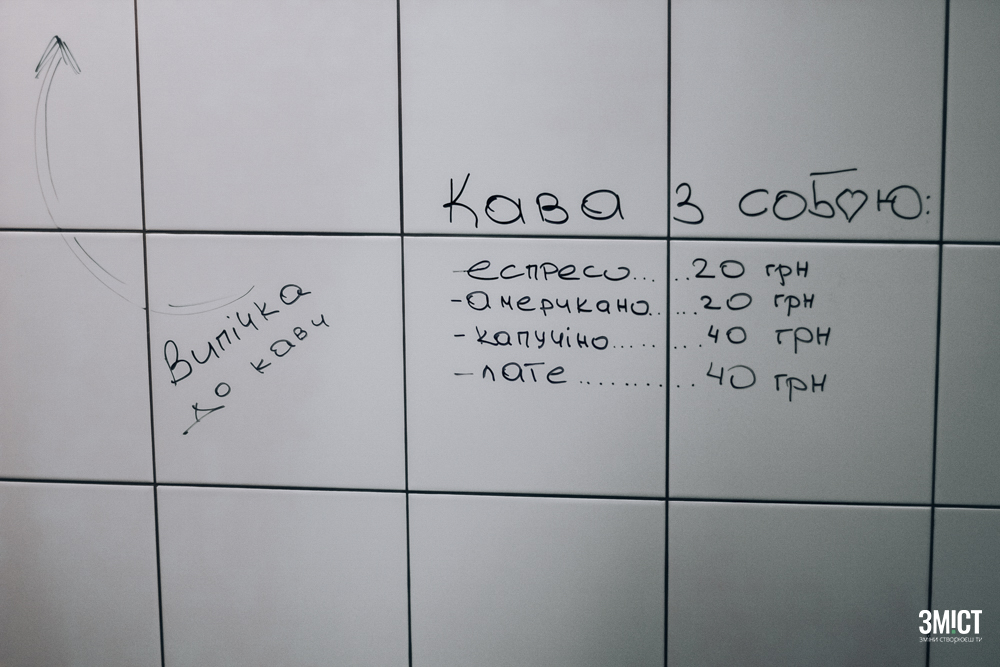 Кава з собою:
-еспресо.......20 грн
-американо.......20 грн
-капучіно..........40 грн
-лате ............40 грн
Випічка
до кави
ЗМІСТ
ЗМІНИ СТВОРЮЄШ ТИ